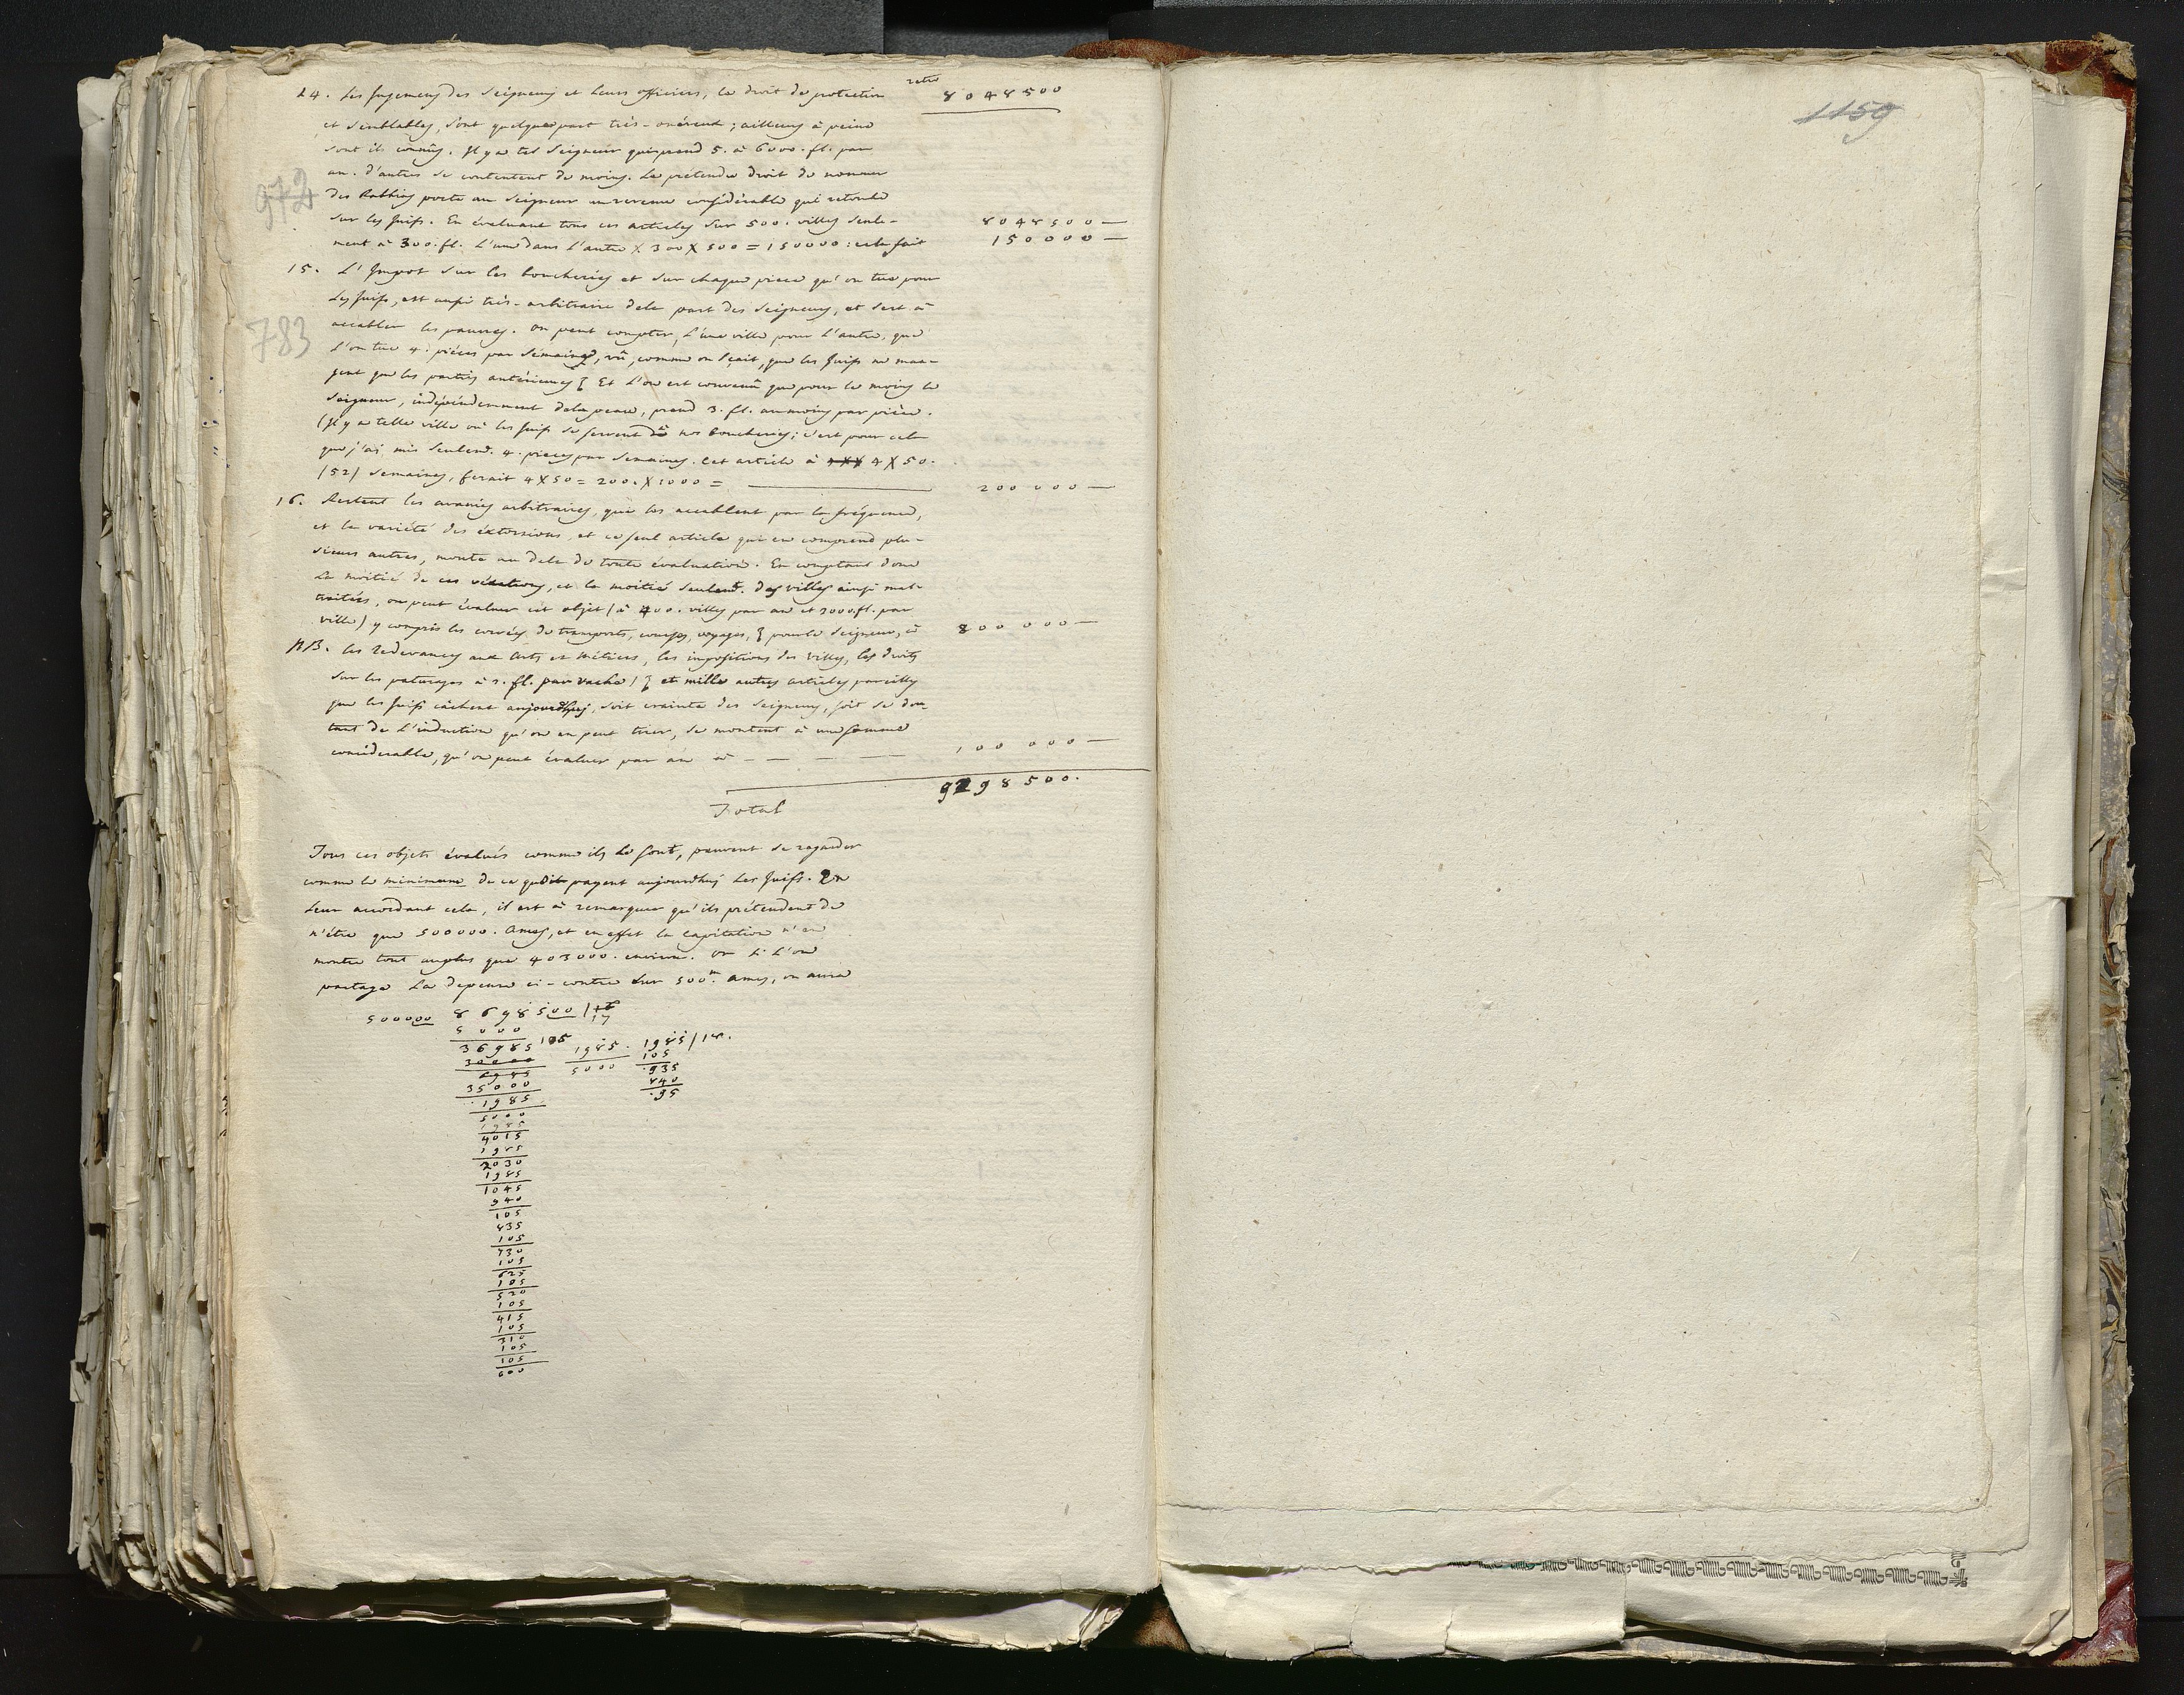 retro
14. Les Jugemens des Seigneurs et leurs officiers, le droit de protection 8048500
et semblables, sont quelque part très-onéreux ; ailleurs à peine
sont ils connûs. Il y a tel Seigneur qui prend 5. à 6000. fl. par
an. d'autres se contentent de moins. Le prétendu droit de nommer
972
des Rabbins porte au Seigneur un revenu considérable qui retombe
sur les Juifs. En évaluant tous ces articles sur 500. villes seule- 8048500—
ment à 300. fl. l'une dans l'autre X 300 X 500 = 150000 : cela fait 150000—
15. L'Impot sur les boucheries et sur chaque piece qu'on tue pour
les Juifs, est aussi très-arbitraire dela part des Seigneurs, et sert à
783
accabler les pauvres. On peut compter, l'une ville pour l'autre, que
l'on tue 4. pièces par Semaine, vû, comme on sçait, que les Juifs ne man-
gent que les parties antérieures Et l'on est convenû que pour le moins le
Seigneur, indépendemment dela peau, prend 3. fl. au moins par pièce.
(Il y a telle ville où les Juifs se servent de nos boucheries ; c'est pour cela
que j'ai mis seulemt. 4. pieces par Semaines. Cet article à 4 X 50.
(52) Semaines, ferait 4 X 50 = 200. X 1000 = 200 000—
16. Restent les avanies arbitraires, que les accablent par la fréquence,
et la variété des extorsions, et ce seul article qui en comprend plu-
sieurs autres, monte au dela de toute évaluation. En comptant donc
la moitié de ces vexations, et la moitié seulemt. des villes ainsi mal-
traitées, on peut évaluer cet objet (à 400. villes par an et 2000. fl. par
ville) y compris les corvées de transports, courses, voyages, pour le Seigneur, à 800 000—
NB. les redevances aux Arts et Métiers, les impositions des villes, les droits
sur les paturages à 2. fl. par vache) et mille autres articles pareils
que les Juifs cachent aujourdhuj, soit crainte des Seigneurs, soit se dou-
tant de l'induction qu'on en peut tirer, se montent à une somme
considerable, qu'on peut évaluer par an à — — — 100 000—
9298500.
Total
Tous ces objets évalués comme ils le sont, peuvent se regarder
comme le minimum de ce que payent aujourdhuj les Juifs. En
leur accordant cela, il est à remarquer qu'ils prétendent de
n'être que 500000. Ames, et en effet la capitation n'en
monte tout auplus que 403000. environ. Or si l'on
partage la depense ci-contre sur 500m. ames, on aura
500000 8698500 / 17
5000
36985 105 1985. 1985 / 18.
30000 5000 105
6985 .935
35000 840
.1985 .95
5000
1985
4015
1985
2030
1985
1045
940
105
835
105
730
105
625
105
520
105
415
105
310
105
105
000
1159